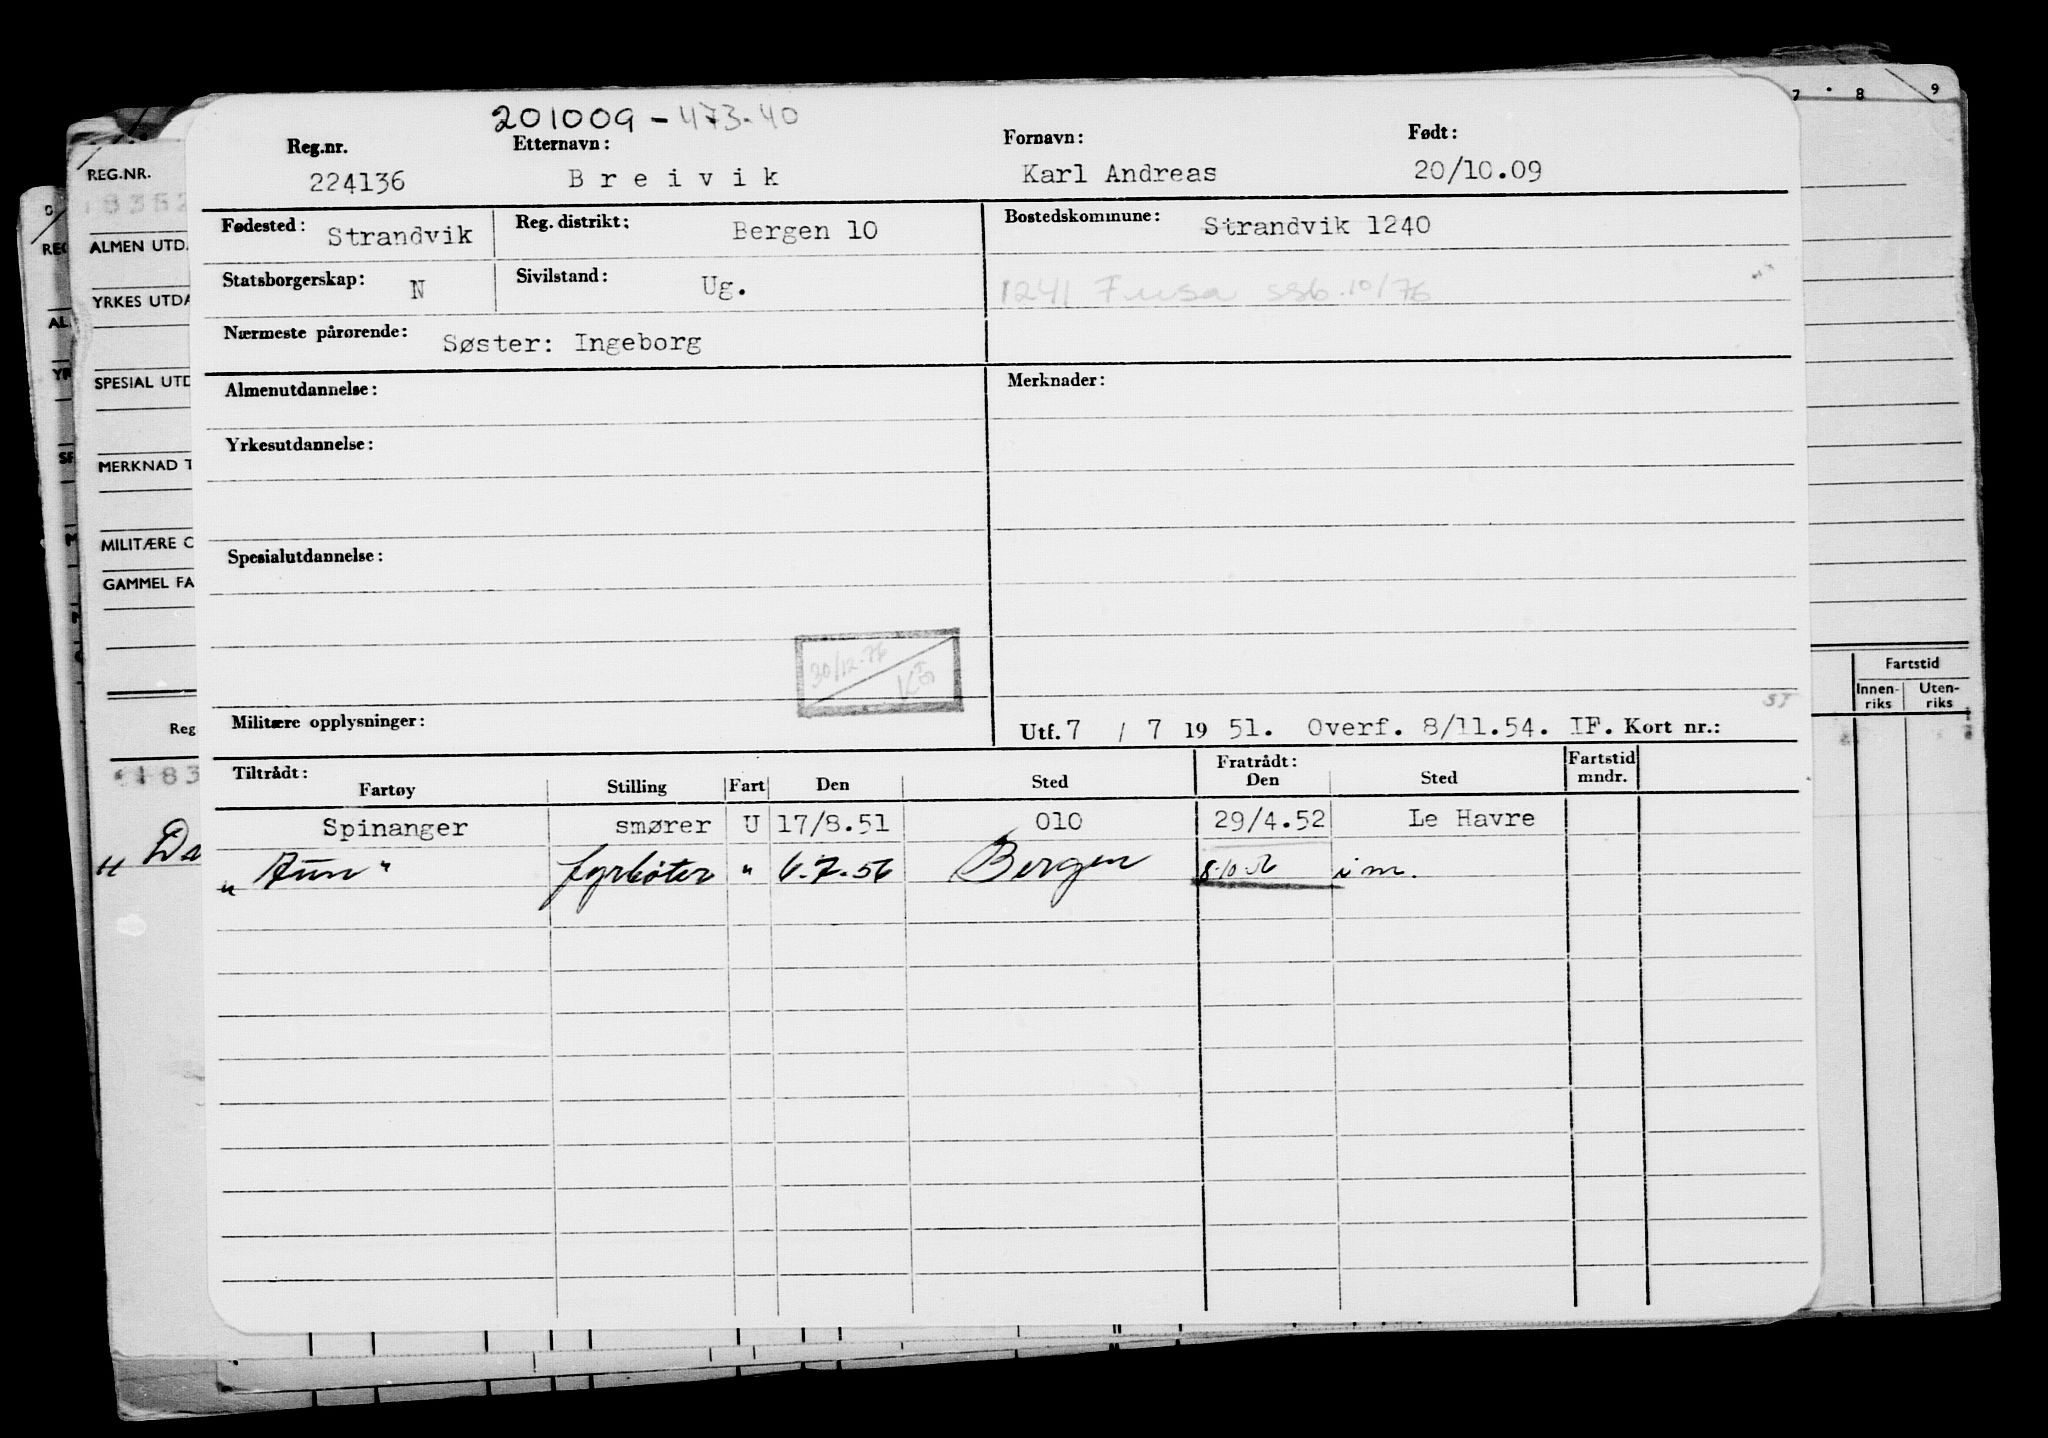 201009-473-40
Reg.nr. Etternavn: Fornavn: Født:
224136 Breivik Karl Andreas 20/10.09
Fødested: Strandvik Reg. distrikt: Bergen 10 Bostedskommune: Strandvik 1240
Statsborgerskap: N Sivilstand: Ug. 1241 Fusa ssb. 10/76
Nærmeste pårørende: Søster: Ingeborg
Almenutdannelse: Merknader:
Yrkesutdannelse:
Spesialutdannelse:
30/12-76
ST
Militære opplysninger: Utf. 7 / 7 19 51. Overf. 8/11.54. IF. Kort nr.:
Tiltrådt: Fratrådt: Fartstid
Fartøy Stilling Fart Den Sted Den Sted mndr.
Spinanger smører U 17/8.51 010 29/4.52 Le Havre
"Aun" fyrbøter " 6.7.56 Bergen 8.10.56 i m.
7 8 9
REG.NR.
ALMEN UTDA
YRKES UTDA
SPESIAL UTD
MERKNAD T
MILITÆRE O
GAMMEL FA
Reg
" Da
Fartstid
Innen-riks Uten-riks